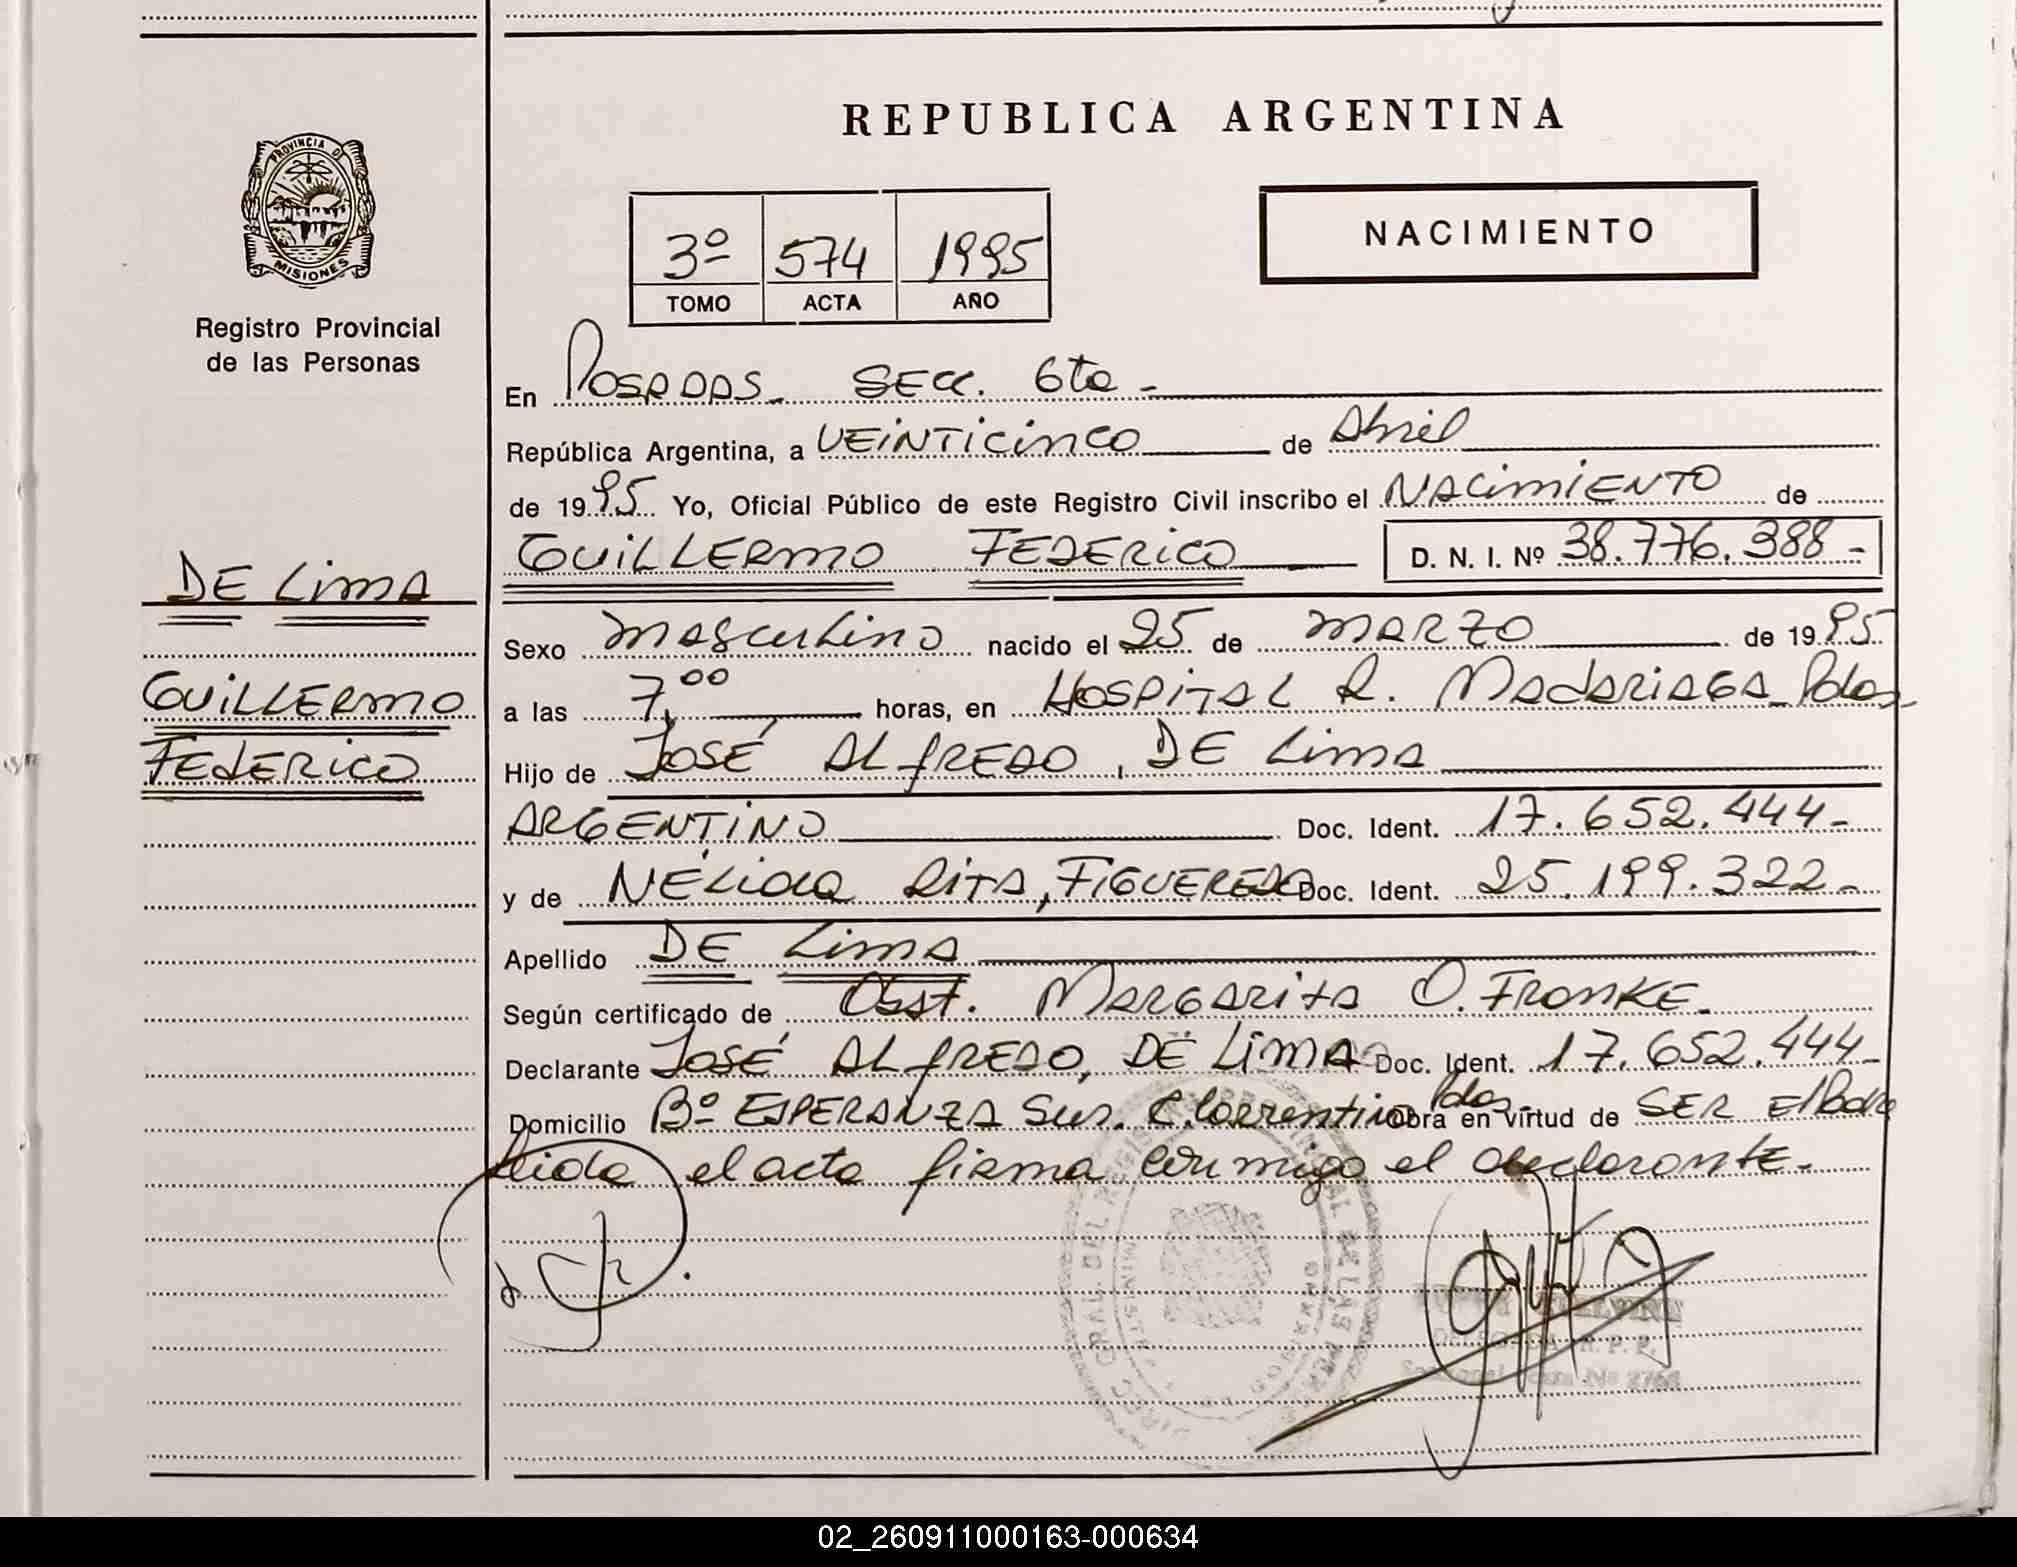 REPUBLICA ARGENTINA
PROVINCIA D
MISIONES
Registro Provincial
de las Personas
3º 574 1995
TOMO ACTA AÑO
NACIMIENTO
En Posadas. Secc. 6ta -
República Argentina, a VEINTICINCO de Abril
de 1995 Yo, Oficial Público de este Registro Civil inscribo el NACIMIENTO de
GUILLERMO FEDERICO D. N. I. Nº 38.776.388 -
DE LIMA
GUILLERMO
FEDERICO
Sexo Masculino nacido el 25 de MARZO de 1995
a las 7,00 horas, en HOSPITAL R. MADARIAGA - Pdas.
Hijo de JOSÉ ALFREDO, DE LIMA
ARGENTINO Doc. Ident. 17.652.444 -
y de NÉLIDA RITA, FIGUEREDO Doc. Ident. 25.199.322 -
Apellido DE LIMA
Según certificado de Obst. MARGARITA O. FRONKE -
Declarante JOSÉ ALFREDO, DE LIMA Doc. Ident. 17.652.444 -
Domicilio Bº ESPERANZA Sur. C. Correntino Pdas. Obra en virtud de SER El Padre
Leida el acta firma conmigo el declarante.
DELEGADA R. P. P.
02_260911000163-000634